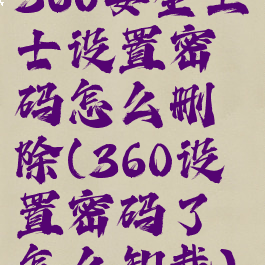 360安全卫
士设置密
码怎么删
除(360设
置密码了
怎么卸载)